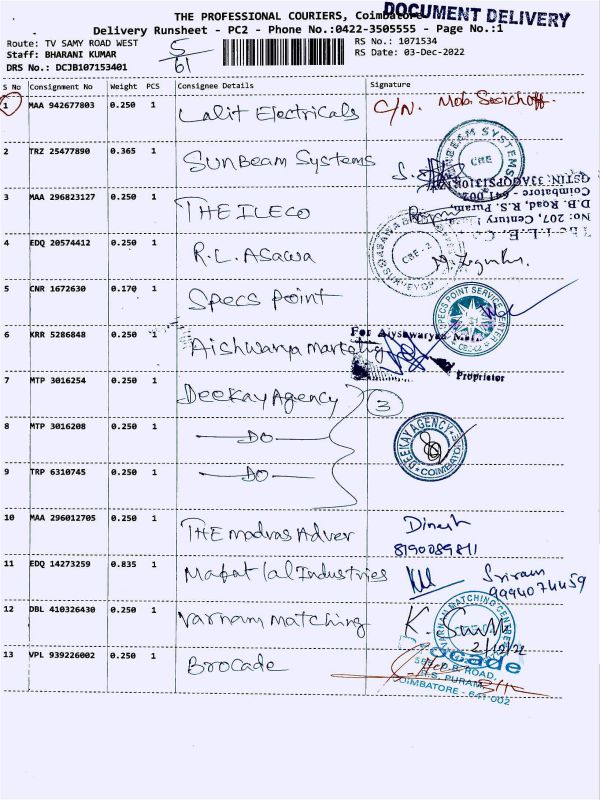 THE PROFESSIONAL COURIERS, Coimbatore
DOCUMENT DELIVERY
Delivery Runsheet - PC2 - Phone No.:0422-3505555 - Page No.:1
Route: TV SAMY ROAD WEST
Staff: BHARANI KUMAR
DRS No.: DCJB107153401
5/61
RS No.: 1071534
RS Date: 03-Dec-2022
S No Consignment No Weight PCS Consignee Details Signature
1 MAA 942677803 0.250 1 Lalit Electricals C/N. Mob.
2 TRZ 25477890 0.365 1 SunBeam Systems
BEAM SYSTEMS
CBE
3 MAA 296823127 0.250 1 THE ILECO
No: 207, Century
D.B. Road, R.S. Puram,
Coimbatore - 641 002
4 EDQ 20574412 0.250 1 R.L. Asawa
CBE - 2
5 CNR 1672630 0.170 1 Specs Point
SPECS POINT SERVICE CENTER
6 KRR 5286848 0.250 1 Aishwarya Marketing
For Aiyshwaryaa
Proprietor
7 MTP 3016254 0.250 1 DeeKay Agency
3
8 MTP 3016208 0.250 1 -DO-
DEEKAY AGENCY
COIMBATORE
9 TRP 6310745 0.250 1 -DO-
10 MAA 296012705 0.250 1 THE madras Adver Dinesh
8190089811
11 EDQ 14273259 0.835 1 Mafatlal Industries Sriram
9994074459
12 DBL 410326430 0.250 1 Varnam matching
VARNAM MATCHING CENTRE
13 VPL 939226002 0.250 1 Brocade
ocade
D.B. ROAD,
R.S. PURAM,
COIMBATORE - 641 002